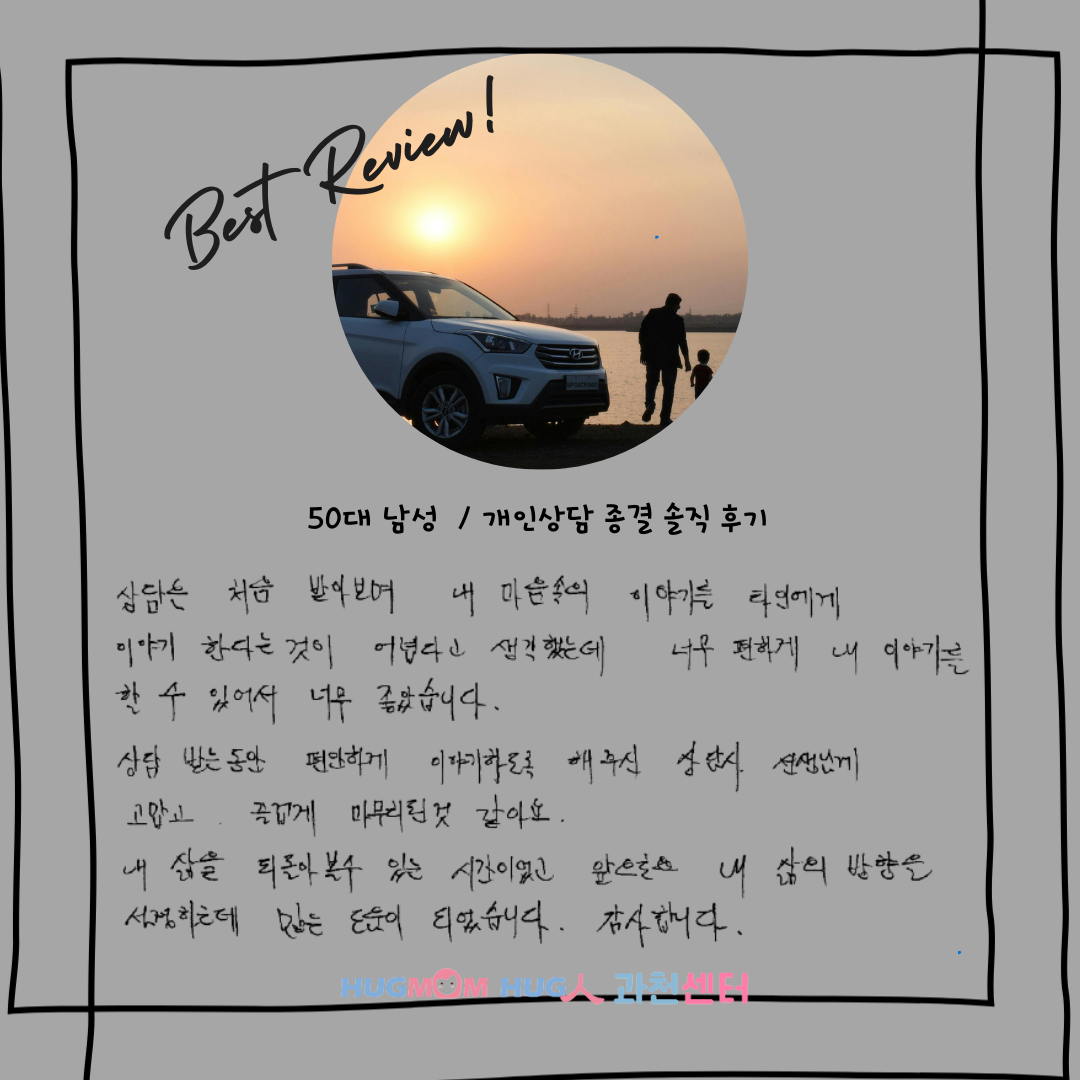 Best Review!
50대 남성 / 개인상담 종결 솔직 후기
상담은 처음 받아보며 내 마음속의 이야기를 타인에게
이야기 한다는것이 어렵다고 생각했는데 너무 편하게 내 이야기를
할 수 있어서 너무 좋았습니다.
상담 받는동안 편안하게 이야기하도록 해주신 상담사 선생님께
고맙고. 즐겁게 마무리된것 같아요.
내 삶을 되돌아볼수 있는 시간이었고 앞으로도 내 삶의 방향을
설정하는데 많은 도움이 되었습니다. 감사합니다.
HUGMOM HUG人 과천센터